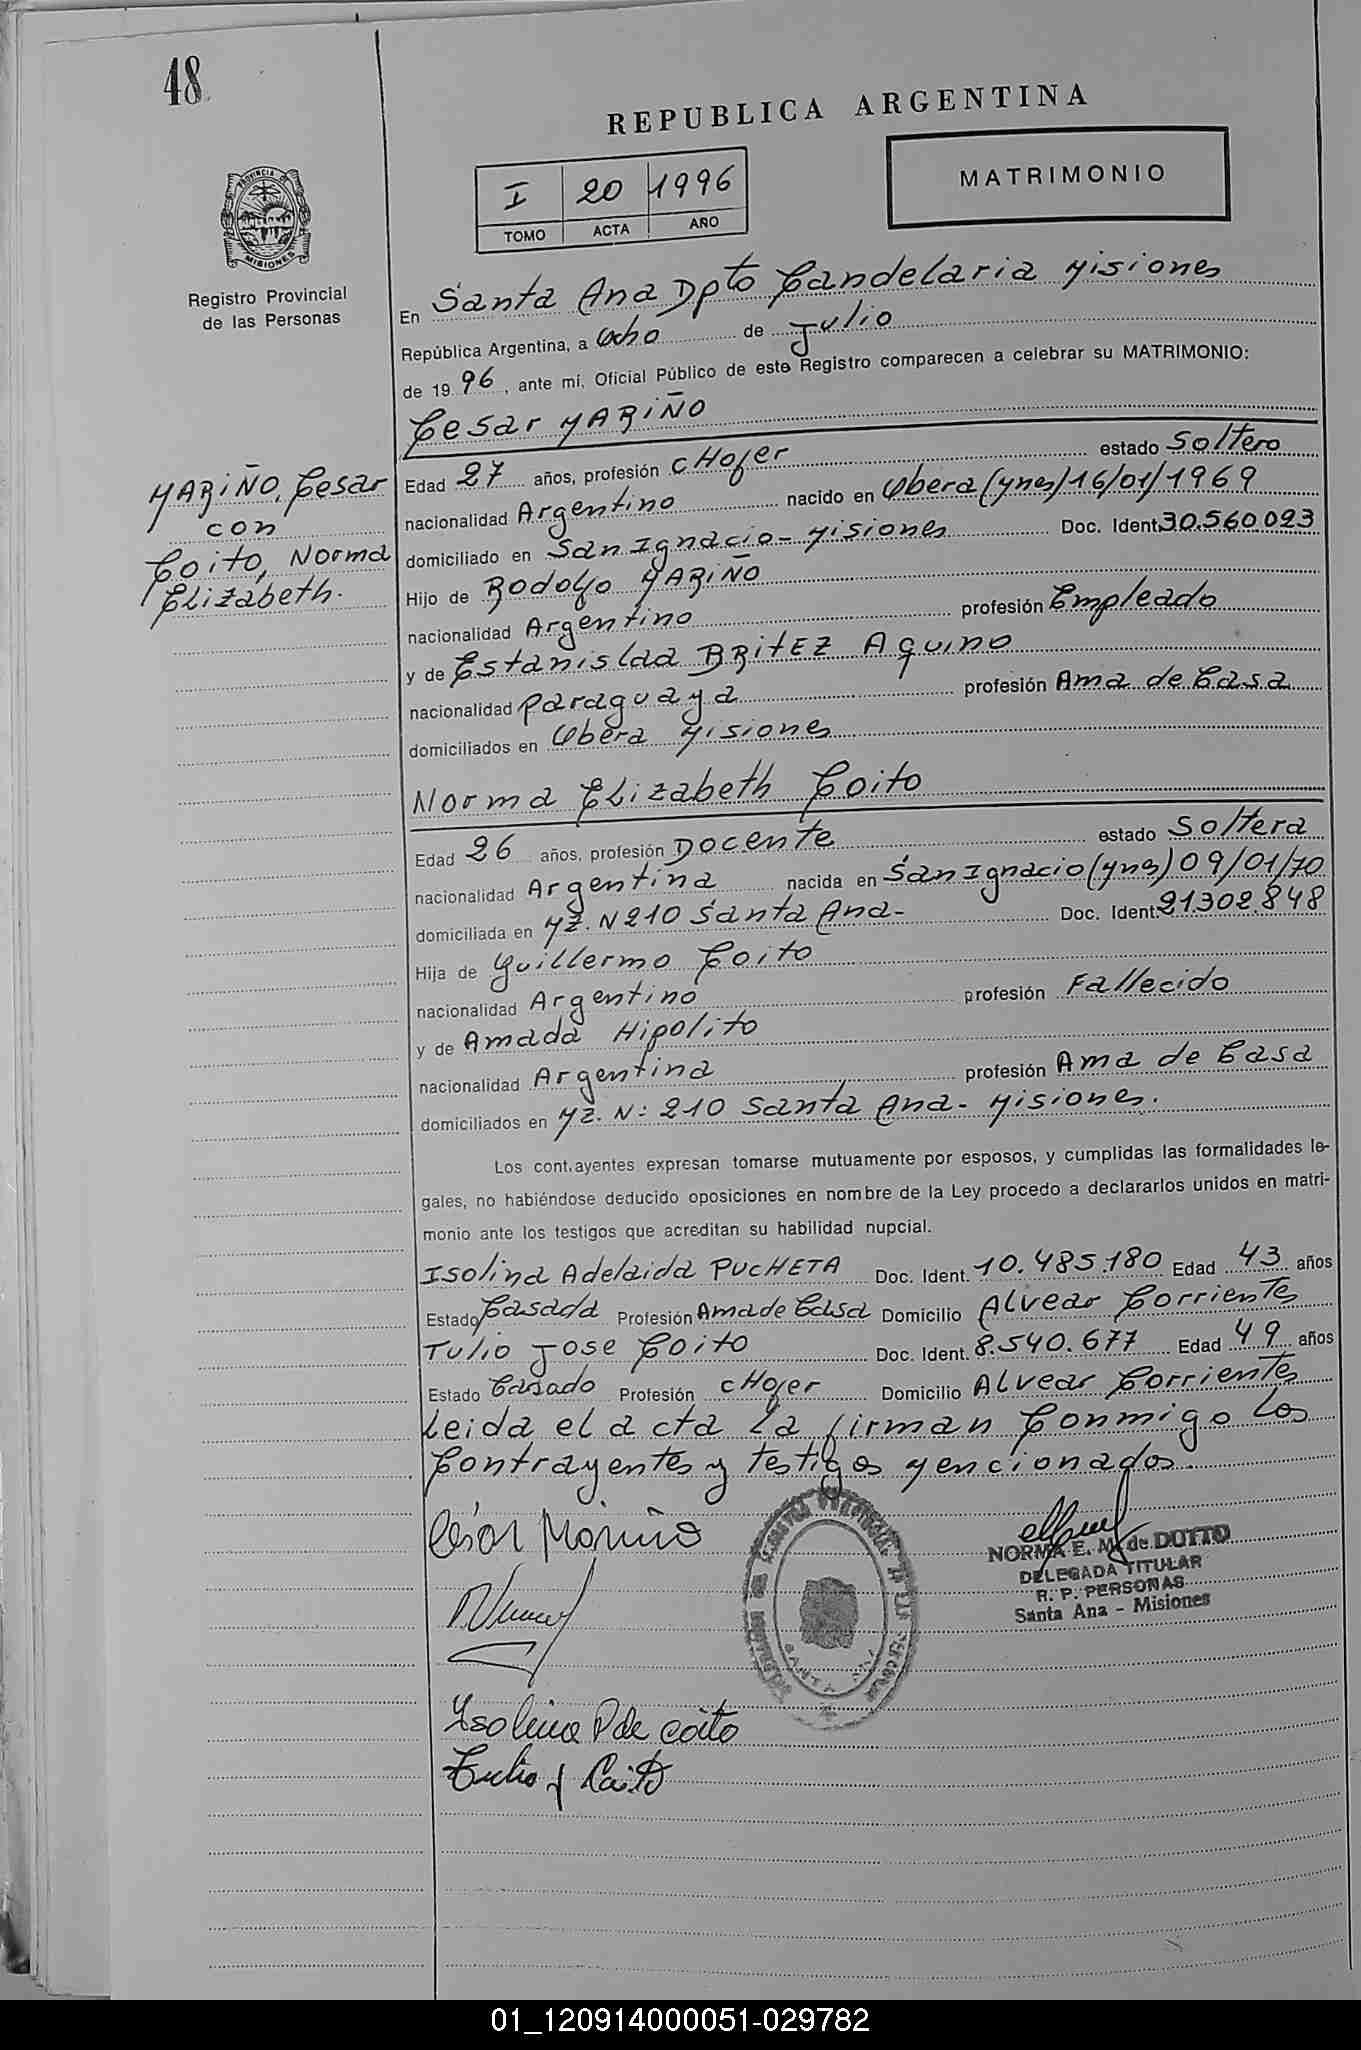 48
REPUBLICA ARGENTINA
I 20 1996
TOMO ACTA AÑO
MATRIMONIO
PROVINCIA DE
MISIONES
Registro Provincial
de las Personas
En Santa Ana Dpto Candelaria Misiones
República Argentina, a Ocho de Julio
de 1996, ante mí, Oficial Público de este Registro comparecen a celebrar su MATRIMONIO:
Cesar MARIÑO
MARIÑO, Cesar
con
Coito, Norma
Elizabeth.
Edad 27 años, profesión CHofer estado Soltero
nacionalidad Argentino nacido en Obera (Mnes) 16/01/1969
domiciliado en San Ignacio - Misiones Doc. Ident. 30.560.023
Hijo de Rodolfo MARIÑO
nacionalidad Argentino profesión Empleado
y de Estanislaa BRITEZ AQUINO
nacionalidad paraguaya profesión Ama de Casa
domiciliados en Obera Misiones
Norma Elizabeth Coito
Edad 26 años, profesión Docente estado Soltera
nacionalidad Argentina nacida en San Ignacio (Mnes) 09/01/70
domiciliada en Mz. N 210 Santa Ana- Doc. Ident. 21302.848
Hija de Guillermo Coito
nacionalidad Argentino profesión Fallecido
y de Amada Hipolito
nacionalidad Argentina profesión Ama de Casa
domiciliados en Mz. N: 210 Santa Ana - Misiones.
Los cont.ayentes expresan tomarse mutuamente por esposos, y cumplidas las formalidades le-
gales, no habiéndose deducido oposiciones en nombre de la Ley procedo a declararlos unidos en matri-
monio ante los testigos que acreditan su habilidad nupcial.
Isolina Adelaida PUCHETA Doc. Ident. 10.485.180 Edad 43 años
Estado Casada Profesión Ama de Casa Domicilio Alvear Corrientes
Tulio Jose Coito Doc. Ident. 8.540.677 Edad 49 años
Estado Casado Profesión CHofer Domicilio Alvear Corrientes
Leida el acta la firman Conmigo los
Contrayentes y testigos Mencionados.
César Mariño
NORMA E. M. de DUTTO
DELEGADA TITULAR
R. P. PERSONAS
Santa Ana - Misiones
SANTA ANA
Isolina P de coito
Tulio J Coito
01_120914000051-029782